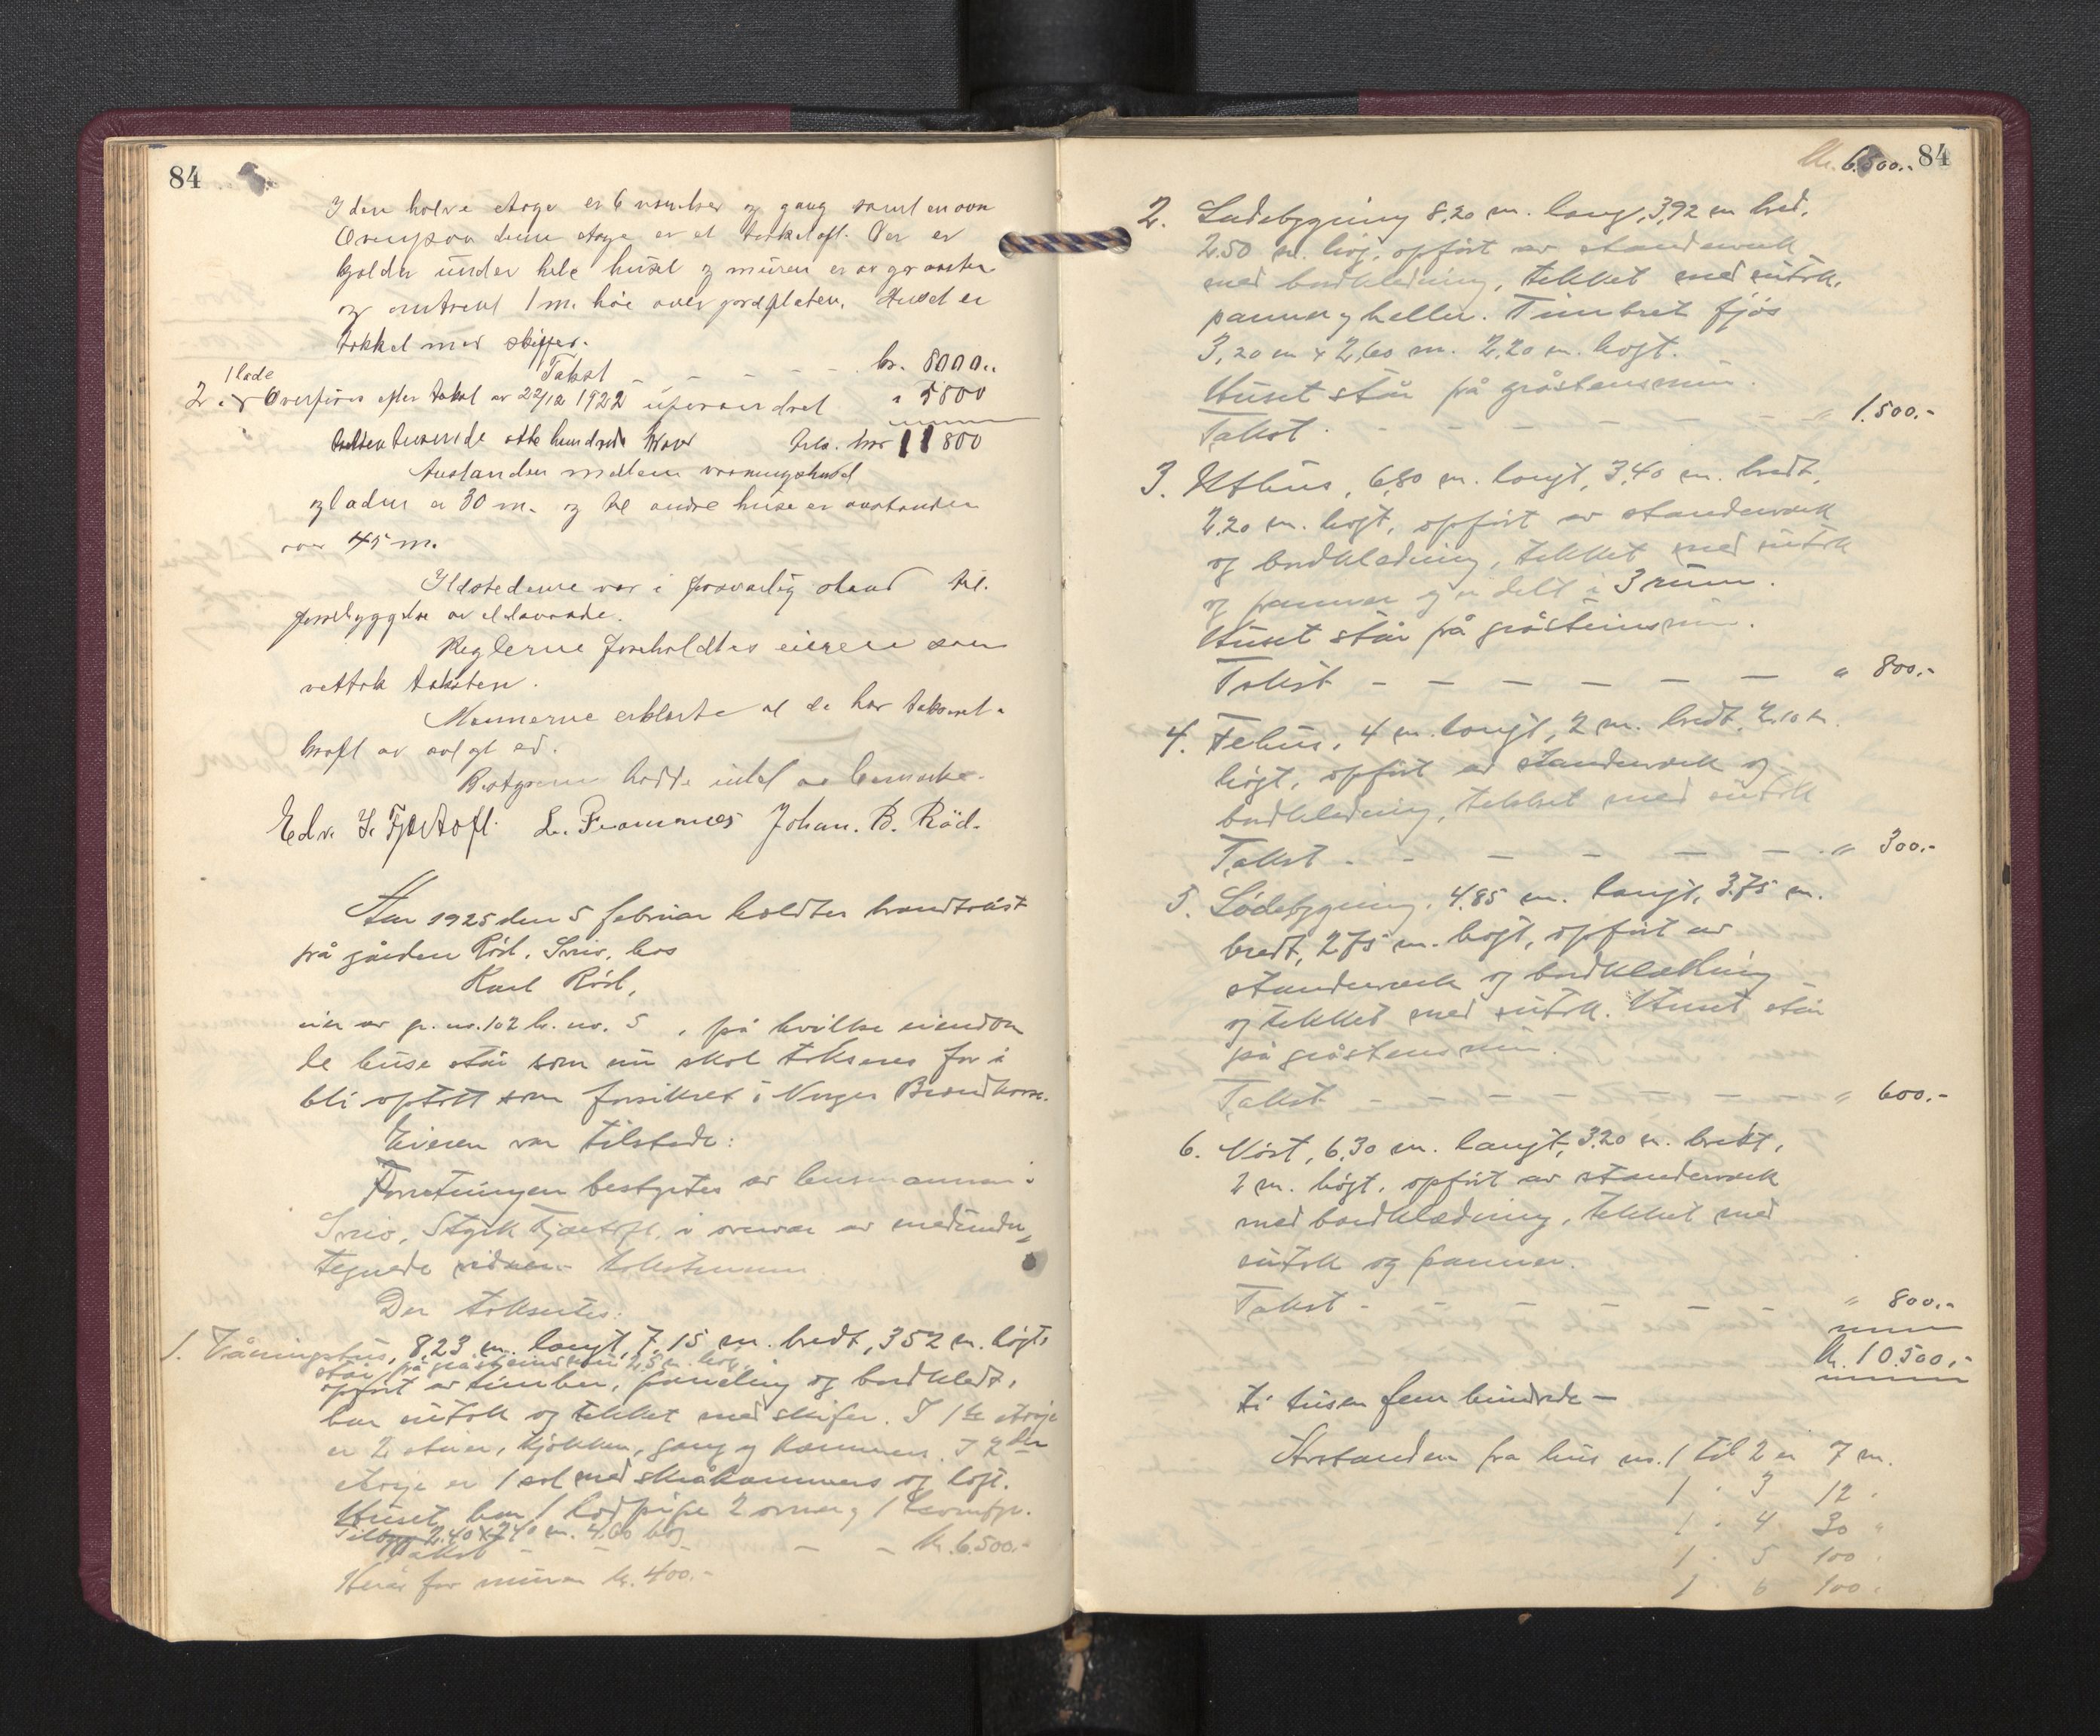 84
I den halve etage er 6 værelser og gang samt en ovn
Ovenpaa denne etage er et tørkeloft. Der er
kjelder under hele huset og muren er av graasten
og omtrent 1 m. høi over jordflaten. Huset er
tækket med skiffer.
Takst - - - - - kr. 8000..
1 lade
2. Overføres efter takst av 22/12 1922 uforandret " 3800
elleve tusende otte hundrede kroner tils. kr 11800
Avstanden mellem vaaningshuset
og laden er 30 m. og til andre huse er avstanden
over 45 m.
Ildstederne var i forsvarlig stand til
forebyggelse av ildsvaade.
Reglerne foreholdtes eieren som
vedtok taksten.
Mændene erklærte at de har taksert i
kraft av avlagt ed.
Bestyreren hadde intet at bemerke.
Edv. S. Fjørtoft. L. Framnes Johan. B. Röd.
Aar 1925 den 5 februar holdtes brandtakst
på gården Röd, Sviö, hos
Karl Röd,
eier av gr. no. 102 br. no. 5, på hvilke eiendom
de huse står som nu skal takseres for å
bli optatt som forsikret i Norges Brandkasse.
Eieren var tilstede:
Forretningen bestyrtes av lensmannen i
Sviö, Styrk Fjørtoft, i overvær av medunder-
tegnede takstmenn
Der taksertes:
1. Våningshus, 8,23 m. langt, 7,15 m. bredt, 352 m. högt,
står på gråsteinsmur 2,5 m. høi,
opfört av timber, paneling og bordkledt,
har sutak og tekket med skifer. I 1ste etasje
er 2 stuer, kjökken, gang og kammers. I 2den
etasje er 1 sal med skråkammers og loft.
Huset har 1 ladpipe 2 ovner og 1 komfyr.
Tilbygg 2.40 x 240 m. 4.60 høg
Takst - - - - - kr. 6.500.-
Herav for muren kr. 400.-
Kr. 6.500.- 84
2. Ladebygning 8,20 m. lang, 3,92 m bred,
2.50 m. høj, opfört av standerverk
med bordkledning, tekket med sutak,
panner og heller. Timbret fjös
3,20 m x 2,60 m. 2.20 m. högt.
Huset står på gråstensmur.
Takst. - - - - - " 1.500.-
3. Uthus, 6,80 m. langt, 3,40 m. bredt,
2,20 m. högt, opfört av standerverk
og bordkledning, tekket med sutak
og panner og er delt i 3 rum.
Huset står på gråsteinsmur.
Takst - - - - - - " 800.-
4. Fehus, 4 m. langt, 2 m. bredt, 2,10 m.
högt, opfört av standerverk og
bordkledning, tekket med sutak
Takst - - - - - - " 300.-
5. Lödebygning, 4.85 m. langt, 3.75 m.
bredt, 2.75 m. högt, opfört av
standerverk og bordklædning
og tekket med sutak. Huset står
på gråstensmur.
Takst - - - - - - " 600.-
6. Nöst, 6,30 m. langt, 3.20 m. bredt,
2 m. högt, opfört av standerverk
med bordklædning, tekket med
sutak og panner.
Takst - - - - - - " 800.-
Kr. 10.500.-
ti tusen fem hundrede —
Avstanden fra hus no. 1 til 2 er 7 m.
1 " 3 12 "
1 " 4 30 "
1 " 5 100 "
1 " 6 100 "